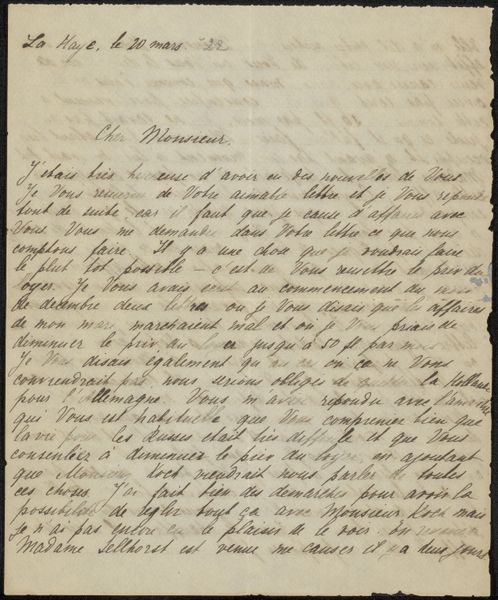 La Haye, le 20 mars 22
Cher Monsieur.
J'étais très heureuse d'avoir eu des nouvelles de Vous.
Je Vous remercie de Votre aimable lettre et je Vous réponds
tout de suite, car il faut que je cause d'affaires avec
Vous. Vous me demandez dans Votre lettre ce que nous
comptons faire. Il y a une chose que je voudrais faire
le plut tôt possible – c'est de Vous remettre le prix du
loyer. Je Vous avais écrit au commencement du mois
de décembre deux lettres où je Vous disais que les affaires
de mon mari marchaient mal et où je Vous priais de
diminuer le prix du jusqu'à 50 fl par mois
Je Vous disais également qu' cas où ce ne Vous
conviendrait pas, nous serions obligés de la Hollande
pour l'Allemagne. Vous m'avez répondu avec l'amabilité
qui Vous est habituelle que Vous compreniez bien que
la vie pour les Russes était très difficile et que Vous
consentiez à diminuer le prix du loyer, en ajoutant
que Monsieur Koch viendrait nous parler de toutes
ces choses. J'ai fait bien des démarches pour avoir la
possibilité de régler tout ça avec Monsieur Koch mais
je n'ai pas encore eu le plaisir de le voir. En
Madame Sellhorst est venue me causer il y a deux jours